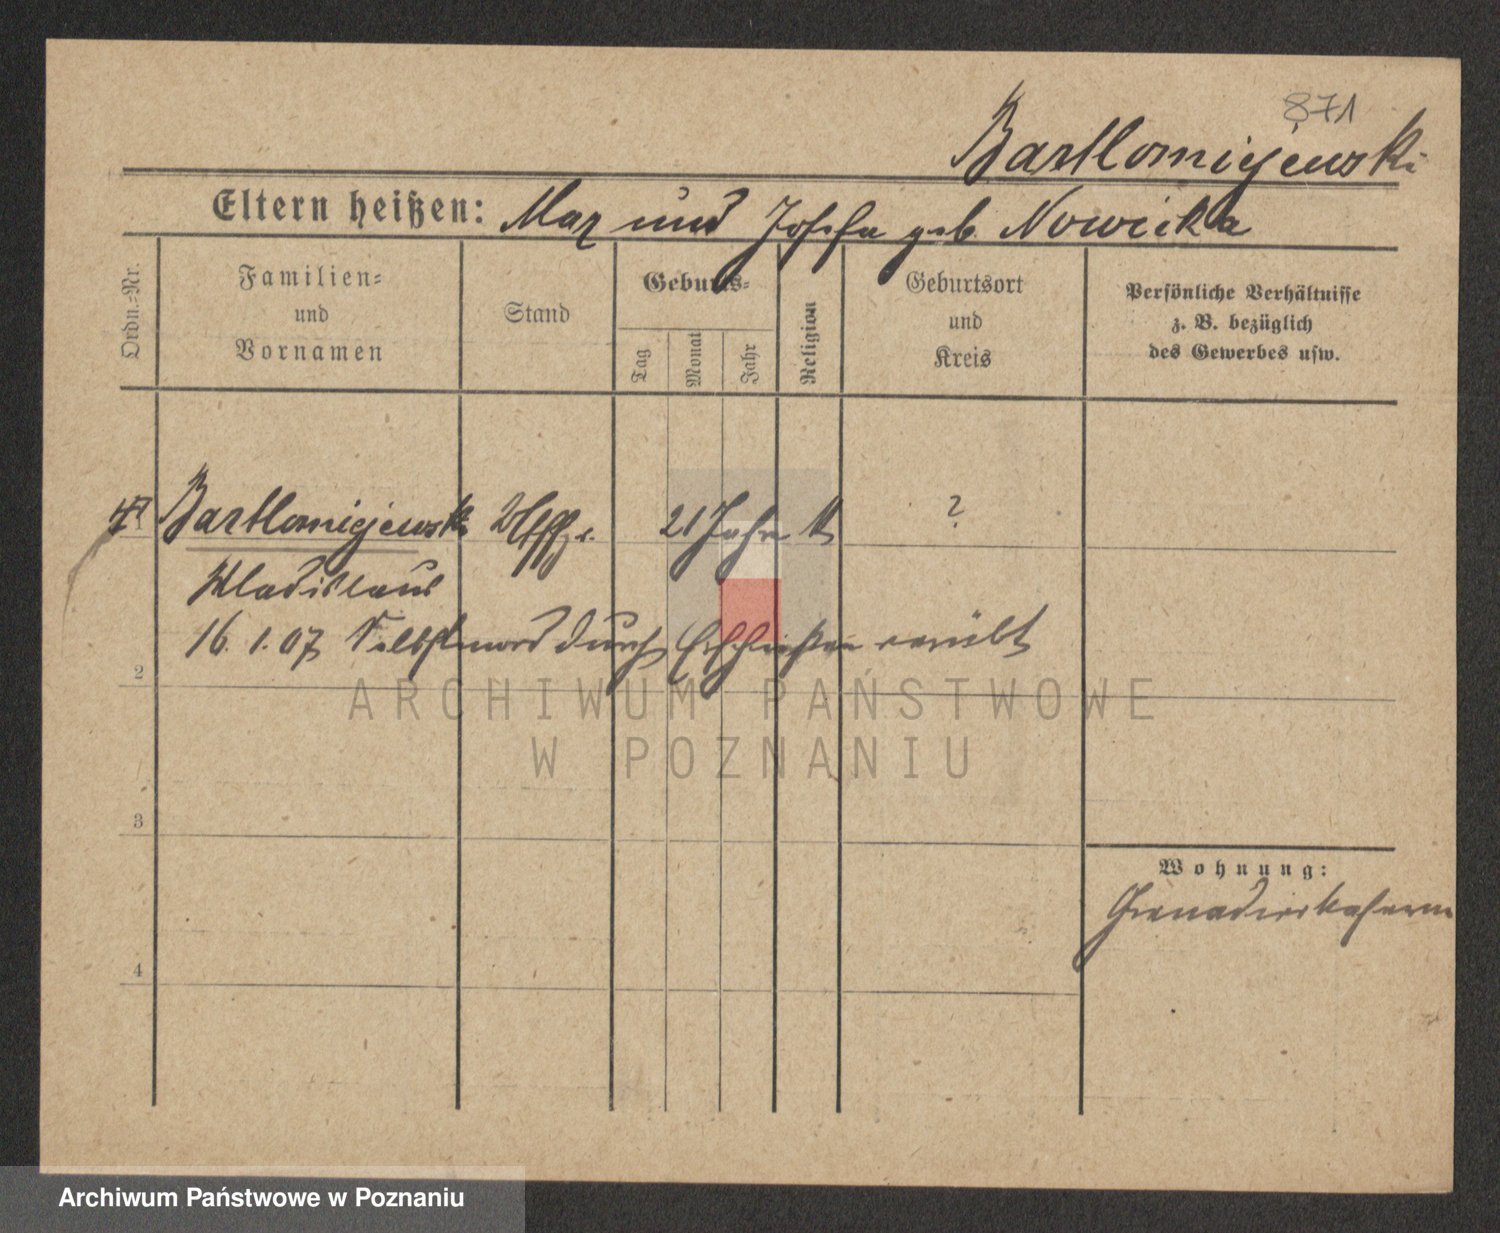 871
Bartlomiejewski
Eltern heißen: Max und Josefa geb. Nowicka
Ordn.-Nr.
Familien-
und
Vornamen
Stand
Geburts-
Tag
Monat
Jahr
Religion
Geburtsort
und
Kreis
Persönliche Verhältnisse
z. B. bezüglich
des Gewerbes usw.
Bartlomiejewski 21 Jahre k ?
Wladislaus
16. 1. 07 Selbstmord durch Erschießen verübt
2
ARCHIWUM PAŃSTWOWE
W POZNANIU
3
Wohnung:
Grenadierkaserne
4
Archiwum Państwowe w Poznaniu